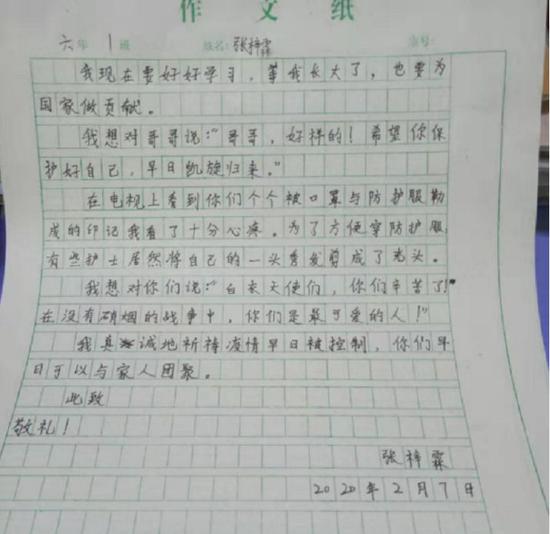 作文纸
六年 1班 姓名:张梓霖 座号:
我现在要好好学习，等我长大了，也要为
国家做贡献。
我想对哥哥说:“哥哥，好样的！希望你保
护好自己，早日凯旋归来。”
在电视上看到你们个个被口罩与防护服勒
成的印记我看了十分心疼。为了方便穿防护服，
有些护士居然将自己的一头秀发剪成了光头。
我想对你们说:“白衣天使们，你们辛苦了！
在没有硝烟的战争中，你们是最可爱的人！”
我真诚地祈祷疫情早日被控制，你们早
日可以与家人团聚。
此致
敬礼！
张梓霖
2020年2月7日